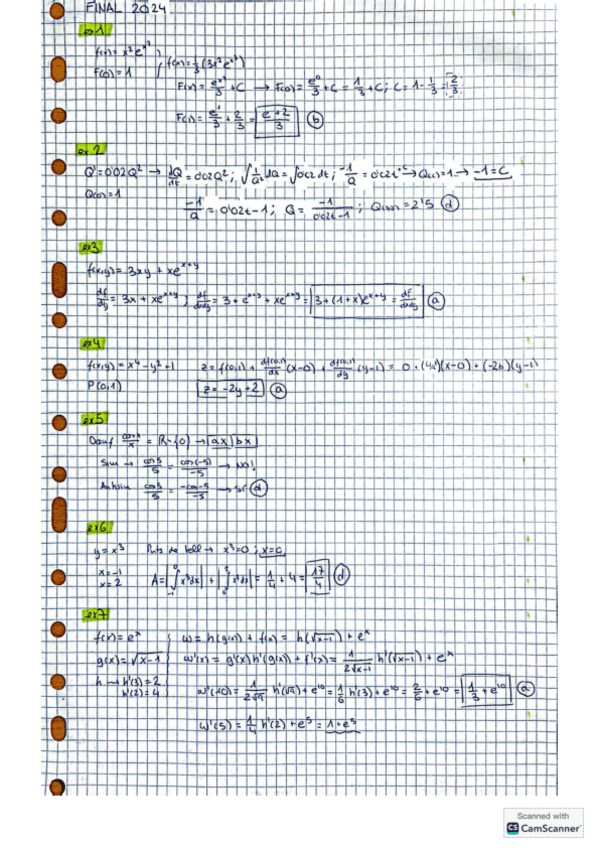 FINAL 2024
ex1
f(x) = x² e^x³
F(0) = 1
f(x) = 1/3 (3x² e^x³)
F(x) = e^x³/3 + C → F(0) = e⁰/3 + C = 1/3 + C; C = 1 - 1/3 = 2/3
F(1) = e¹/3 + 2/3 = e+2/3 (b)
ex2
Q' = 0'02Q² → dQ/dt = 0'02Q²; ∫ 1/Q² dQ = ∫ 0'02 dt; -1/Q = 0'02t + C → Q(0) = 1 → -1 = C
Q(0) = 1
-1/Q = 0'02t - 1; Q = -1/0'02t-1; Q(30) = 2'5 (d)
ex3
f(x,y) = 3xy + xe^x+y
df/dy = 3x + xe^x+y; df/dxdy = 3 + e^x+y + xe^x+y = 3 + (1+x)e^x+y = df/dxdy (a)
ex4
f(x,y) = x⁴ - y² + 1
z = f(0,1) + df(0,1)/dx (x-0) + df(0,1)/dy (y-1) = 0 + (x-0) + (y-1)
P(0,1)
z = -2y + 2 (a)
ex5
cos x/x = R-{0} → a x b x
Sim → cos 5/5 = cos(-5)/-5 → NO!
cos 5/5 = -cos-5/-5 → Sí (d)
ex6
y = x³
Punts de tall → x³ = 0; x = 0
x = -1
x = 2
A = |∫ x³ dx| + |∫ x³ dx| = 1/4 + 4 = 17/4 (d)
ex7
f(x) = e^x
w = h(g(x)) + f(x) = h(√x-1) + e^x
g(x) = √x-1
w'(x) = g'(x) h'(g(x)) + f'(x) = 1/2√x-1 h'(√x-1) + e^x
h → h'(3) = 2
h'(2) = 4
w'(10) = 1/2√9 h'(√9) + e¹⁰ = 1/6 h'(3) + e¹⁰ = 2/6 + e¹⁰ = 1/3 + e¹⁰ (a)
w'(5) = 1/4 h'(2) + e⁵ = 1 + e⁵
Scanned with
CS CamScanner